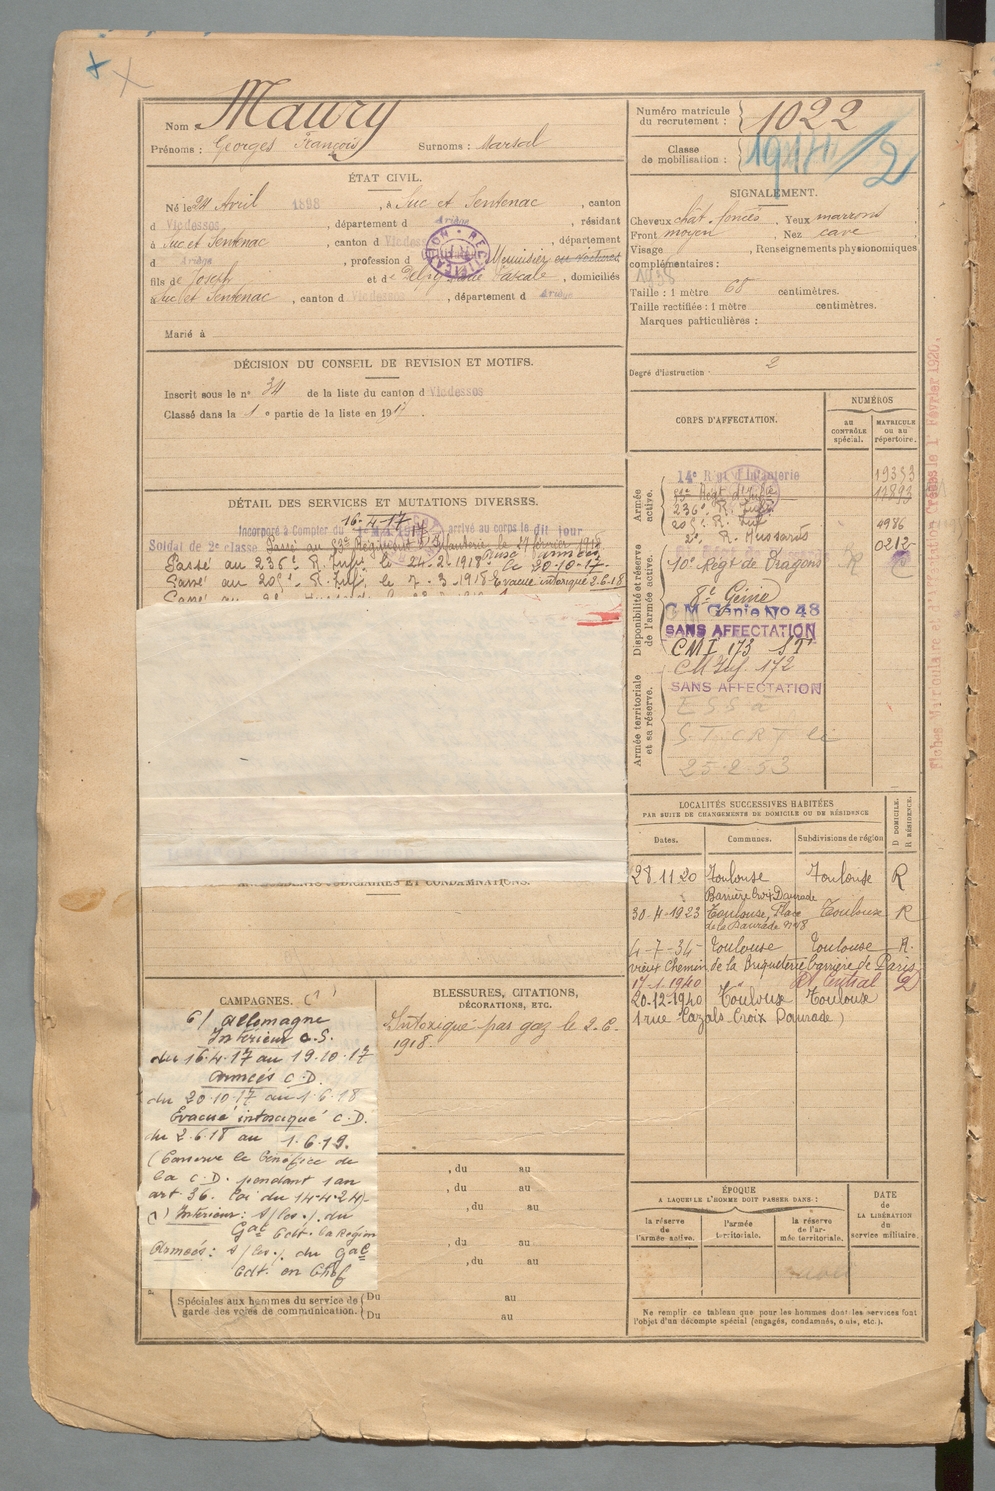 Nom : Maury
Prénoms : Georges François Surnoms : Marsal
Numéro matricule du recrutement : 1022
Classe de mobilisation :
ÉTAT CIVIL.
Né le 24 Avril 1898, à Suc et Sentenac, canton
d Vicdessos, département d Ariège, résidant
à Suc et Sentenac, canton d Vicdessos, département
d Ariège, profession d Menuisier en voitures
fils de Joseph et de Marie Pascale, domiciliés
à Suc et Sentenac, canton d Vicdessos, département d Ariège
Marié à
SIGNALEMENT.
Cheveux chât. foncés, Yeux marrons
Front moyen, Nez cave
Visage , Renseignements physionomiques
complémentaires :
Taille : 1 mètre 68 centimètres.
Taille rectifiée : 1 mètre centimètres.
Marques particulières :
Degré d'instruction : 2
DÉCISION DU CONSEIL DE REVISION ET MOTIFS.
Inscrit sous le n° 34 de la liste du canton d Vicdessos
Classé dans la 1e partie de la liste en 1917.
DÉTAIL DES SERVICES ET MUTATIONS DIVERSES.
16-4-17
Incorporé à Compter du arrivé au corps le dit jour
Soldat de 2e classe Passé au 83e Régiment d'Infanterie le 24 février 1918
Passé au 236e R. Infie le 24-2-1918 aux armées le 20-10-17
Passé au 205e R. Infie le 7-3-1918 Evacué intoxiqué 2.6.18
CORPS D'AFFECTATION.
NUMÉROS
au CONTRÔLE spécial.
MATRICULE ou au répertoire.
Armée active.
14e Régt d'Infanterie 19353
83e Régt d'Infie 17893
236e R. Infie
205e R. Inf 4986
2e R. Hussards 0212
Disponibilité et réserve de l'armée active.
10e Régt de Dragons
8e Génie
C M Génie No 48
SANS AFFECTATION
CMI 173 ST
CM Inf. 172
SANS AFFECTATION
Armée territoriale et sa réserve.
25-2-53
Fiches Matriculaire et d'Affectation Créées le 1er Février 1926.
LOCALITÉS SUCCESSIVES HABITÉES
PAR SUITE DE CHANGEMENTS DE DOMICILE OU DE RÉSIDENCE
Dates. Communes. Subdivisions de région D. DOMICILE. R. RÉSIDENCE.
28.11.20 Toulouse Toulouse R
Barrière Croix Daurade
30-4-1923 Toulouse, Place Toulouse R
de la Daurade n° 8
4-7-34- Toulouse Toulouse R.
vieux Chemin de la Briqueterie barrière de Paris
17-1-1940 " Rt Central
20-12-1940 Toulouse Toulouse
1 rue Cazals Croix Daurade)
ANTÉCÉDENTS JUDICIAIRES ET CONDAMNATIONS.
CAMPAGNES. (1)
C/ Allemagne
Intérieur C.S.
du 16-4-17 au 19-10-17
Armées C.D.
du 20-10-17 au 1-6-18
Evacué intoxiqué C.D.
du 2-6-18 au 1-6-19.
(Conserve le bénéfice de
la C.D. pendant 1 an
art 36. loi du 14-4-24)
Intérieur : s/les . du
Gal Cdt. la Région
Armées : s/les . du Gal
Cdt. en Chef
BLESSURES, CITATIONS,
DÉCORATIONS, ETC.
Intoxiqué par gaz le 2-6-
1918.
, du au
, du au
, du au
, du au
, du au
Spéciales aux hommes du service de
garde des voies de communication.
Du au
Du au
ÉPOQUE
A LAQUELLE L'HOMME DOIT PASSER DANS :
la réserve de l'armée active.
l'armée territoriale.
la réserve de l'armée territoriale.
DATE de LA LIBÉRATION du service militaire.
Ne remplir ce tableau que pour les hommes dont les services font
l'objet d'un décompte spécial (engagés, condamnés, omis, etc.).